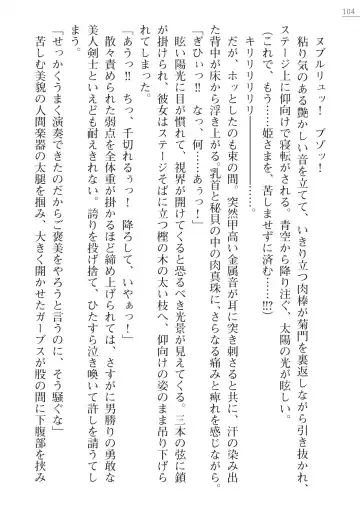 104
ヌブルリュッ！　ブゾッ！
粘り気のある艶かしい音を立てて、いきり立つ肉棒が菊門を裏返しながら引き抜かれ、
ステージ上に仰向けで寝転がされる。青空から降り注ぐ、太陽の光が眩しい。
（これで、もう……姫さまを、苦しませずに済む……!!?）
キリリリリリリ――――――……。
だが、ホッとしたのも束の間。突然甲高い金属音が耳に突き刺さると共に、汗の染み出
た背中が床から浮き上がる。乳首と秘貝の中の肉真珠に、さらなる痛みと痺れを感じながら。
「ぎひぃっ!!　なっ、何……あぅっ！」
眩い陽光に目が慣れて、視界が開けてくると恐るべき光景が見えてくる。三本の弦に鎖
が掛けられ、彼女はステージそばに立つ樫の木の太い枝へ、仰向けの姿のまま吊り下げら
れてしまった。
「あうっ!!　ち、千切れるぅっ！　降ろして、いやぁっ！」
散々責められた弱点を全体重が掛かるほど締め上げられては、さすがに男勝りの勇敢な
美人剣士といえども耐えきれない。誇りを投げ捨て、ひたすら泣き喚いて許しを請うてし
まう。
「せっかくうまく演奏できたのだからご褒美をやろうと言うのに、そう騒ぐな」
苦しむ美貌の人間楽器の太腿を掴み、大きく開かせたガーブスが股の間に下腹部を挟み